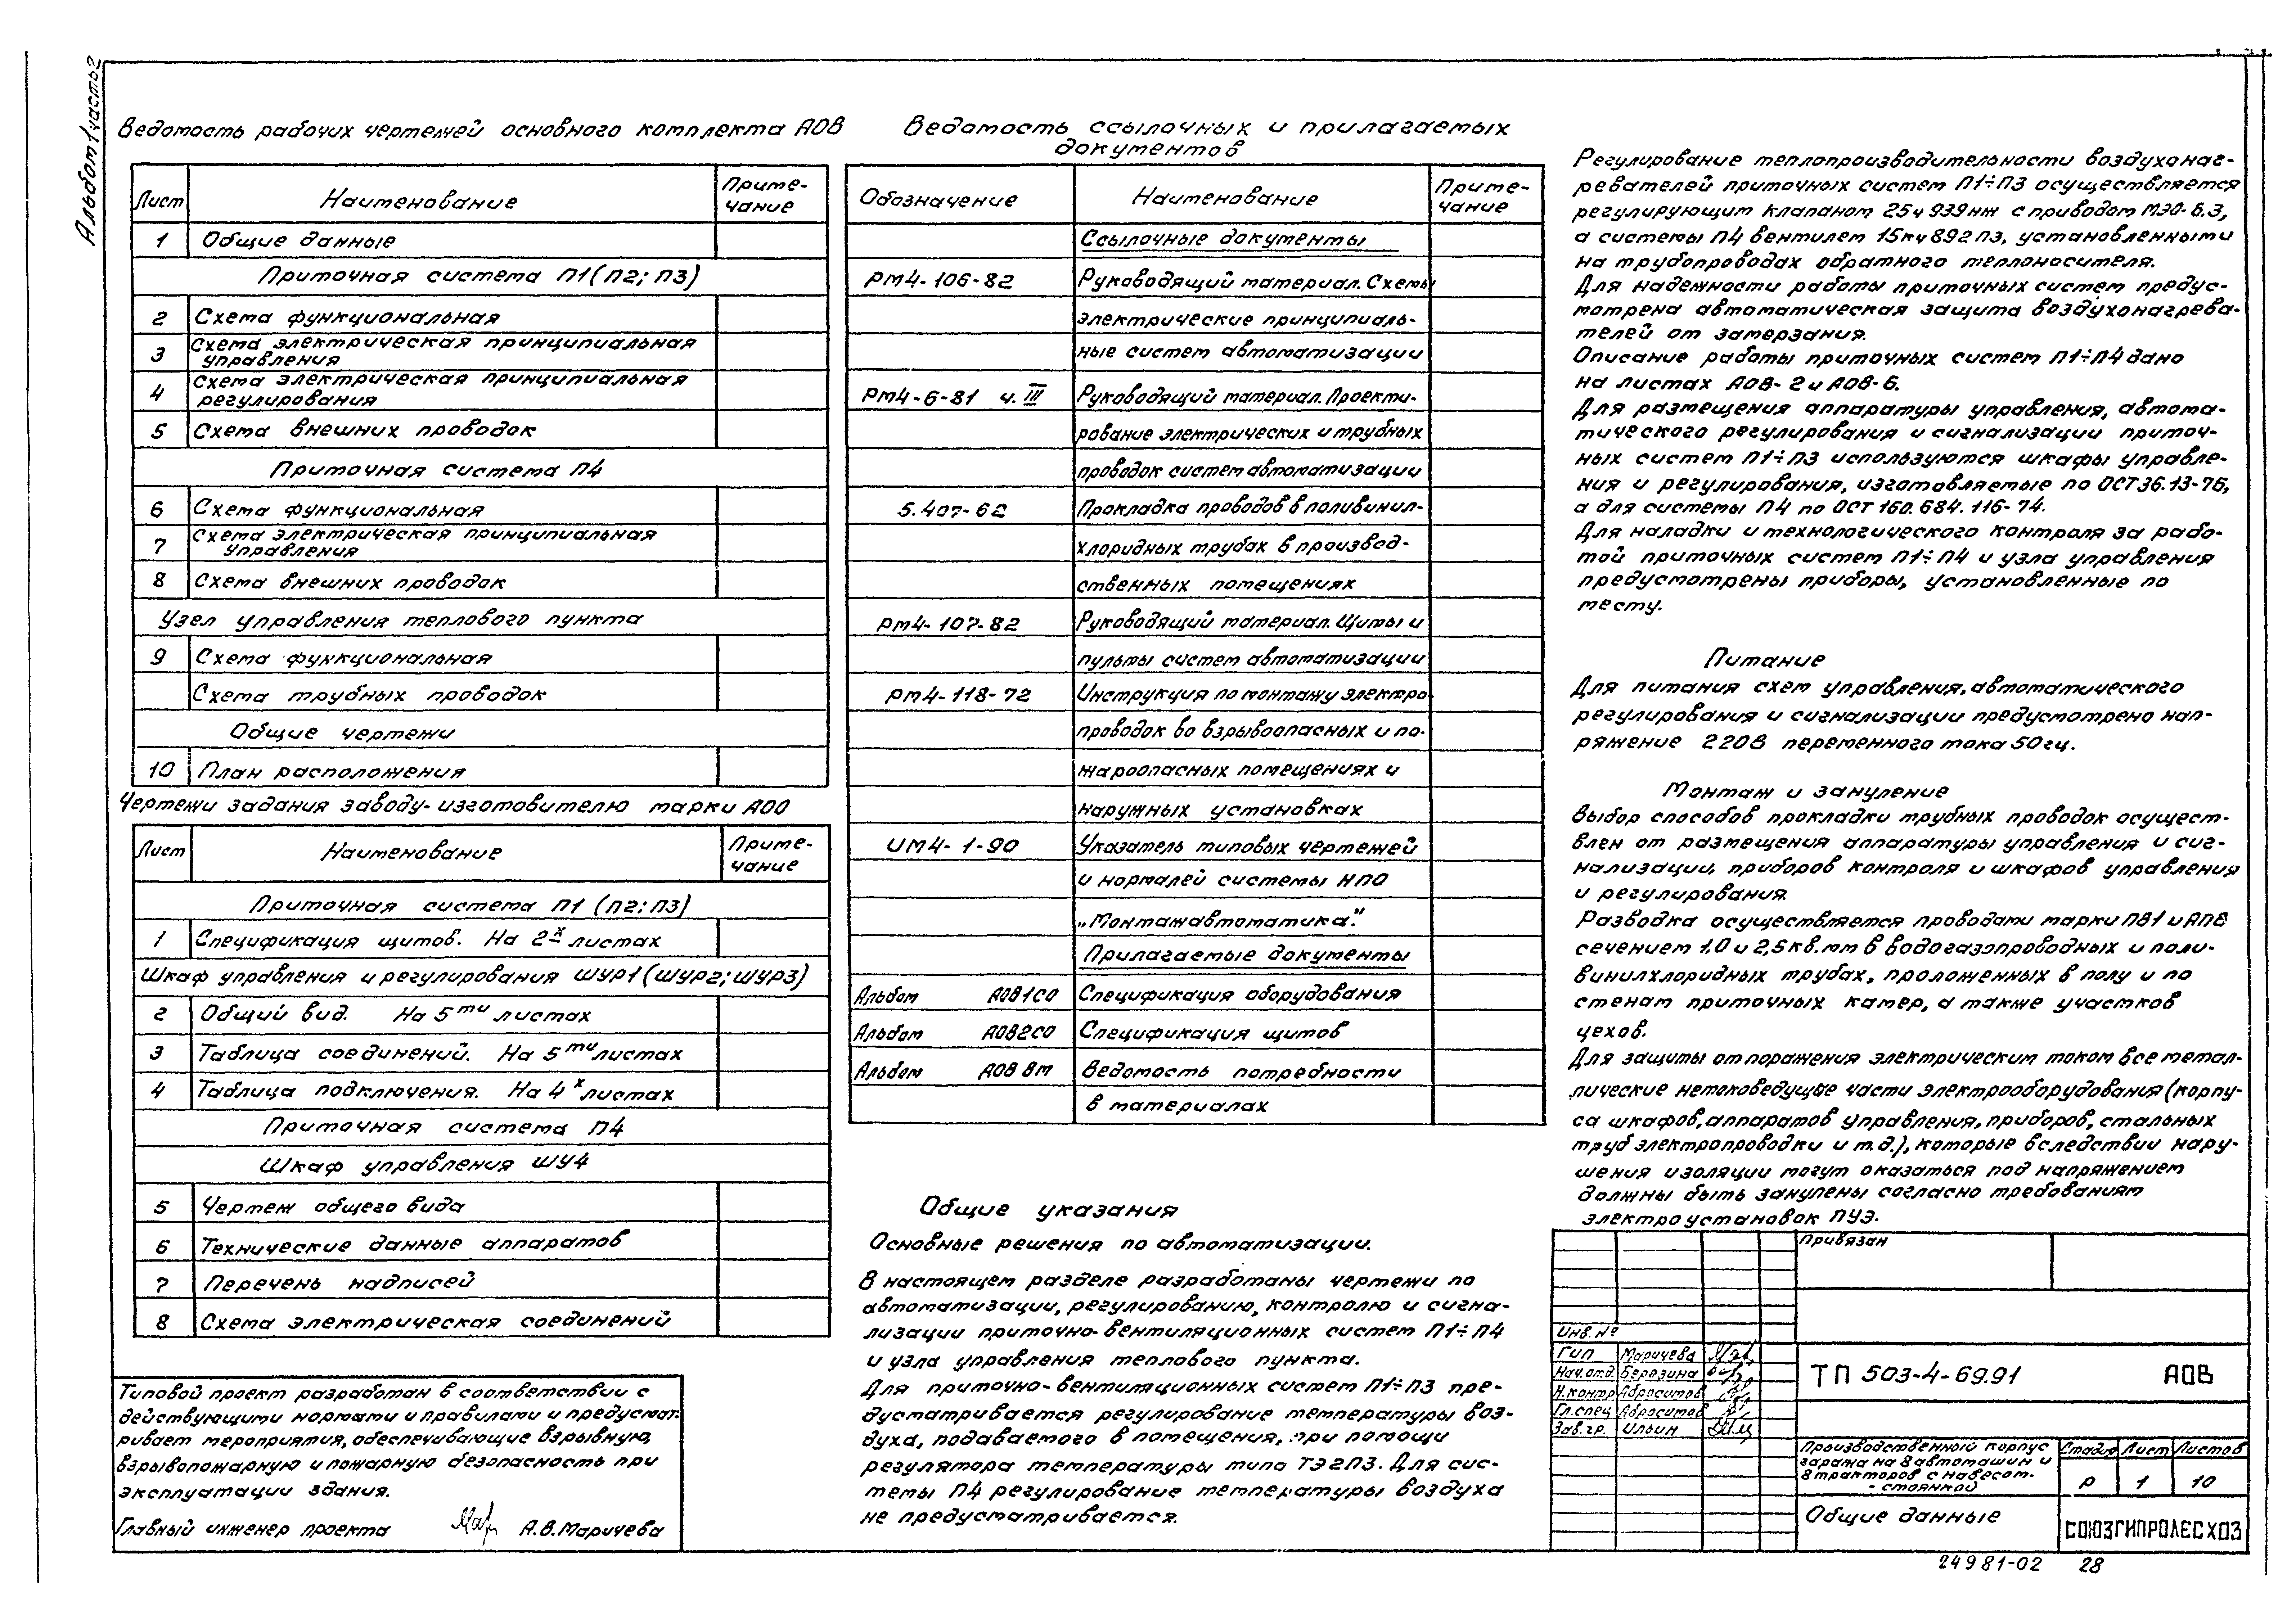 Альбом 1 часть 2
Ведомость рабочих чертежей основного комплекта АОВ
Лист Наименование Приме-
чание
1 Общие данные
Приточная система П1 (П2; П3)
2 Схема функциональная
3 Схема электрическая принципиальная
управления
4 Схема электрическая принципиальная
регулирования
5 Схема внешних проводок
Приточная система П4
6 Схема функциональная
7 Схема электрическая принципиальная
управления
8 Схема внешних проводок
Узел управления теплового пункта
9 Схема функциональная
Схема трубных проводок
Общие чертежи
10 План расположения
Чертежи задания заводу-изготовителю марки АОО
Лист Наименование Приме-
чание
Приточная система П1 (П2; П3)
1 Спецификация щитов. На 2х листах
Шкаф управления и регулирования ШУР1 (ШУР2; ШУР3)
2 Общий вид. На 5ти листах
3 Таблица соединений. На 5ти листах
4 Таблица подключения. На 4х листах
Приточная система П4
Шкаф управления ШУ4
5 Чертеж общего вида
6 Технические данные аппаратов
7 Перечень надписей
8 Схема электрическая соединений
Типовой проект разработан в соответствии с
действующими нормами и правилами и предусмат-
ривает мероприятия, обеспечивающие взрывную,
взрывопожарную и пожарную безопасность при
эксплуатации здания.
Главный инженер проекта А.В. Маричева
Ведомость ссылочных и прилагаемых
документов
Обозначение Наименование Приме-
чание
Ссылочные документы
РМ4-106-82 Руководящий материал. Схемы
электрические принципиаль-
ные систем автоматизации
РМ4-6-81 ч. III Руководящий материал. Проекти-
рование электрических и трубных
проводок систем автоматизации
5.407-62 Прокладка проводов в поливинил-
хлоридных трубах в производ-
ственных помещениях
РМ4-107-82 Руководящий материал. Щиты и
пульты систем автоматизации
РМ4-118-72 Инструкция по монтажу электро
проводок во взрывоопасных и по-
жароопасных помещениях и
наружных установках
ИМ4-1-90 Указатель типовых чертежей
и нормалей системы НПО
„Монтажавтоматика."
Прилагаемые документы
Альбом АОВ1СО Спецификация оборудования
Альбом АОВ2СО Спецификация щитов
Альбом АОВ ВМ Ведомость потребности
в материалах
Общие указания
Основные решения по автоматизации.
В настоящем разделе разработаны чертежи по
автоматизации, регулированию, контролю и сигна-
лизации приточно-вентиляционных систем П1÷П4
и узла управления теплового пункта.
Для приточно-вентиляционных систем П1÷П3 пре-
дусматривается регулирование температуры воз-
духа, подаваемого в помещения, при помощи
регулятора температуры типа ТЭ2П3. Для сис-
темы П4 регулирование температуры воздуха
не предусматривается.
Регулирование теплопроизводительности воздухонаг-
ревателей приточных систем П1÷П3 осуществляется
регулирующим клапаном 25ч 939нж с приводом МЭО-6.3,
а системы П4 вентилем 15кч 892 п3, установленными
на трубопроводах обратного теплоносителя.
Для надежности работы приточных систем предус-
мотрена автоматическая защита воздухонагрева-
телей от замерзания.
Описание работы приточных систем П1÷П4 дано
на листах АОВ-2 и АОВ-6.
Для размещения аппаратуры управления, автома-
тического регулирования и сигнализации приточ-
ных систем П1÷П3 используются шкафы управле-
ния и регулирования, изготовляемые по ОСТ 36.13-76,
а для системы П4 по ОСТ 160.684.116-74.
Для наладки и технологического контроля за рабо-
той приточных систем П1÷П4 и узла управления
предусмотрены приборы, установленные по
месту.
Питание
Для питания схем управления, автоматического
регулирования и сигнализации предусмотрено нап-
ряжение 220В переменного тока 50гц.
Монтаж и зануление
Выбор способов прокладки трубных проводок осущест-
влен от размещения аппаратуры управления и сиг-
нализации, приборов контроля и шкафов управления
и регулирования.
Разводка осуществляется проводами марки ПВ1 и АПВ
сечением 1.0 и 2,5 кв.мм в водогазопроводных и поли-
винилхлоридных трубах, проложенных в полу и по
стенам приточных камер, а также участков
цехов.
Для защиты от поражения электрическим током все метал-
лические нетоковедущие части электрооборудования (корпу-
са шкафов, аппаратов управления, приборов, стальных
труб электропроводки и т.д.), которые вследствии нару-
шения изоляции могут оказаться под напряжением
должны быть занулены согласно требованиям
электроустановок ПУЭ.
Привязан
Инв. №
ГИП Маричева
Нач.отд. Березина
Н.контр Абросимов
Гл.спец Абросимов
Зав.гр. Ильин
ТП 503-4-69.91 АОВ
Производственный корпус
гаража на 8 автомашин и
8 тракторов с навесом-
-стоянкой
Стадия Лист Листов
Р 1 10
Общие данные
СОЮЗГИПРОЛЕСХОЗ
24981-02 28